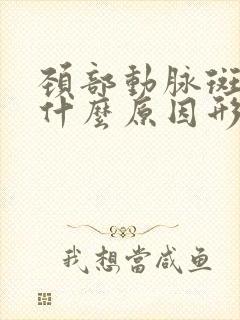 頚部動脉斑
什麼原因形
我想當咸鱼